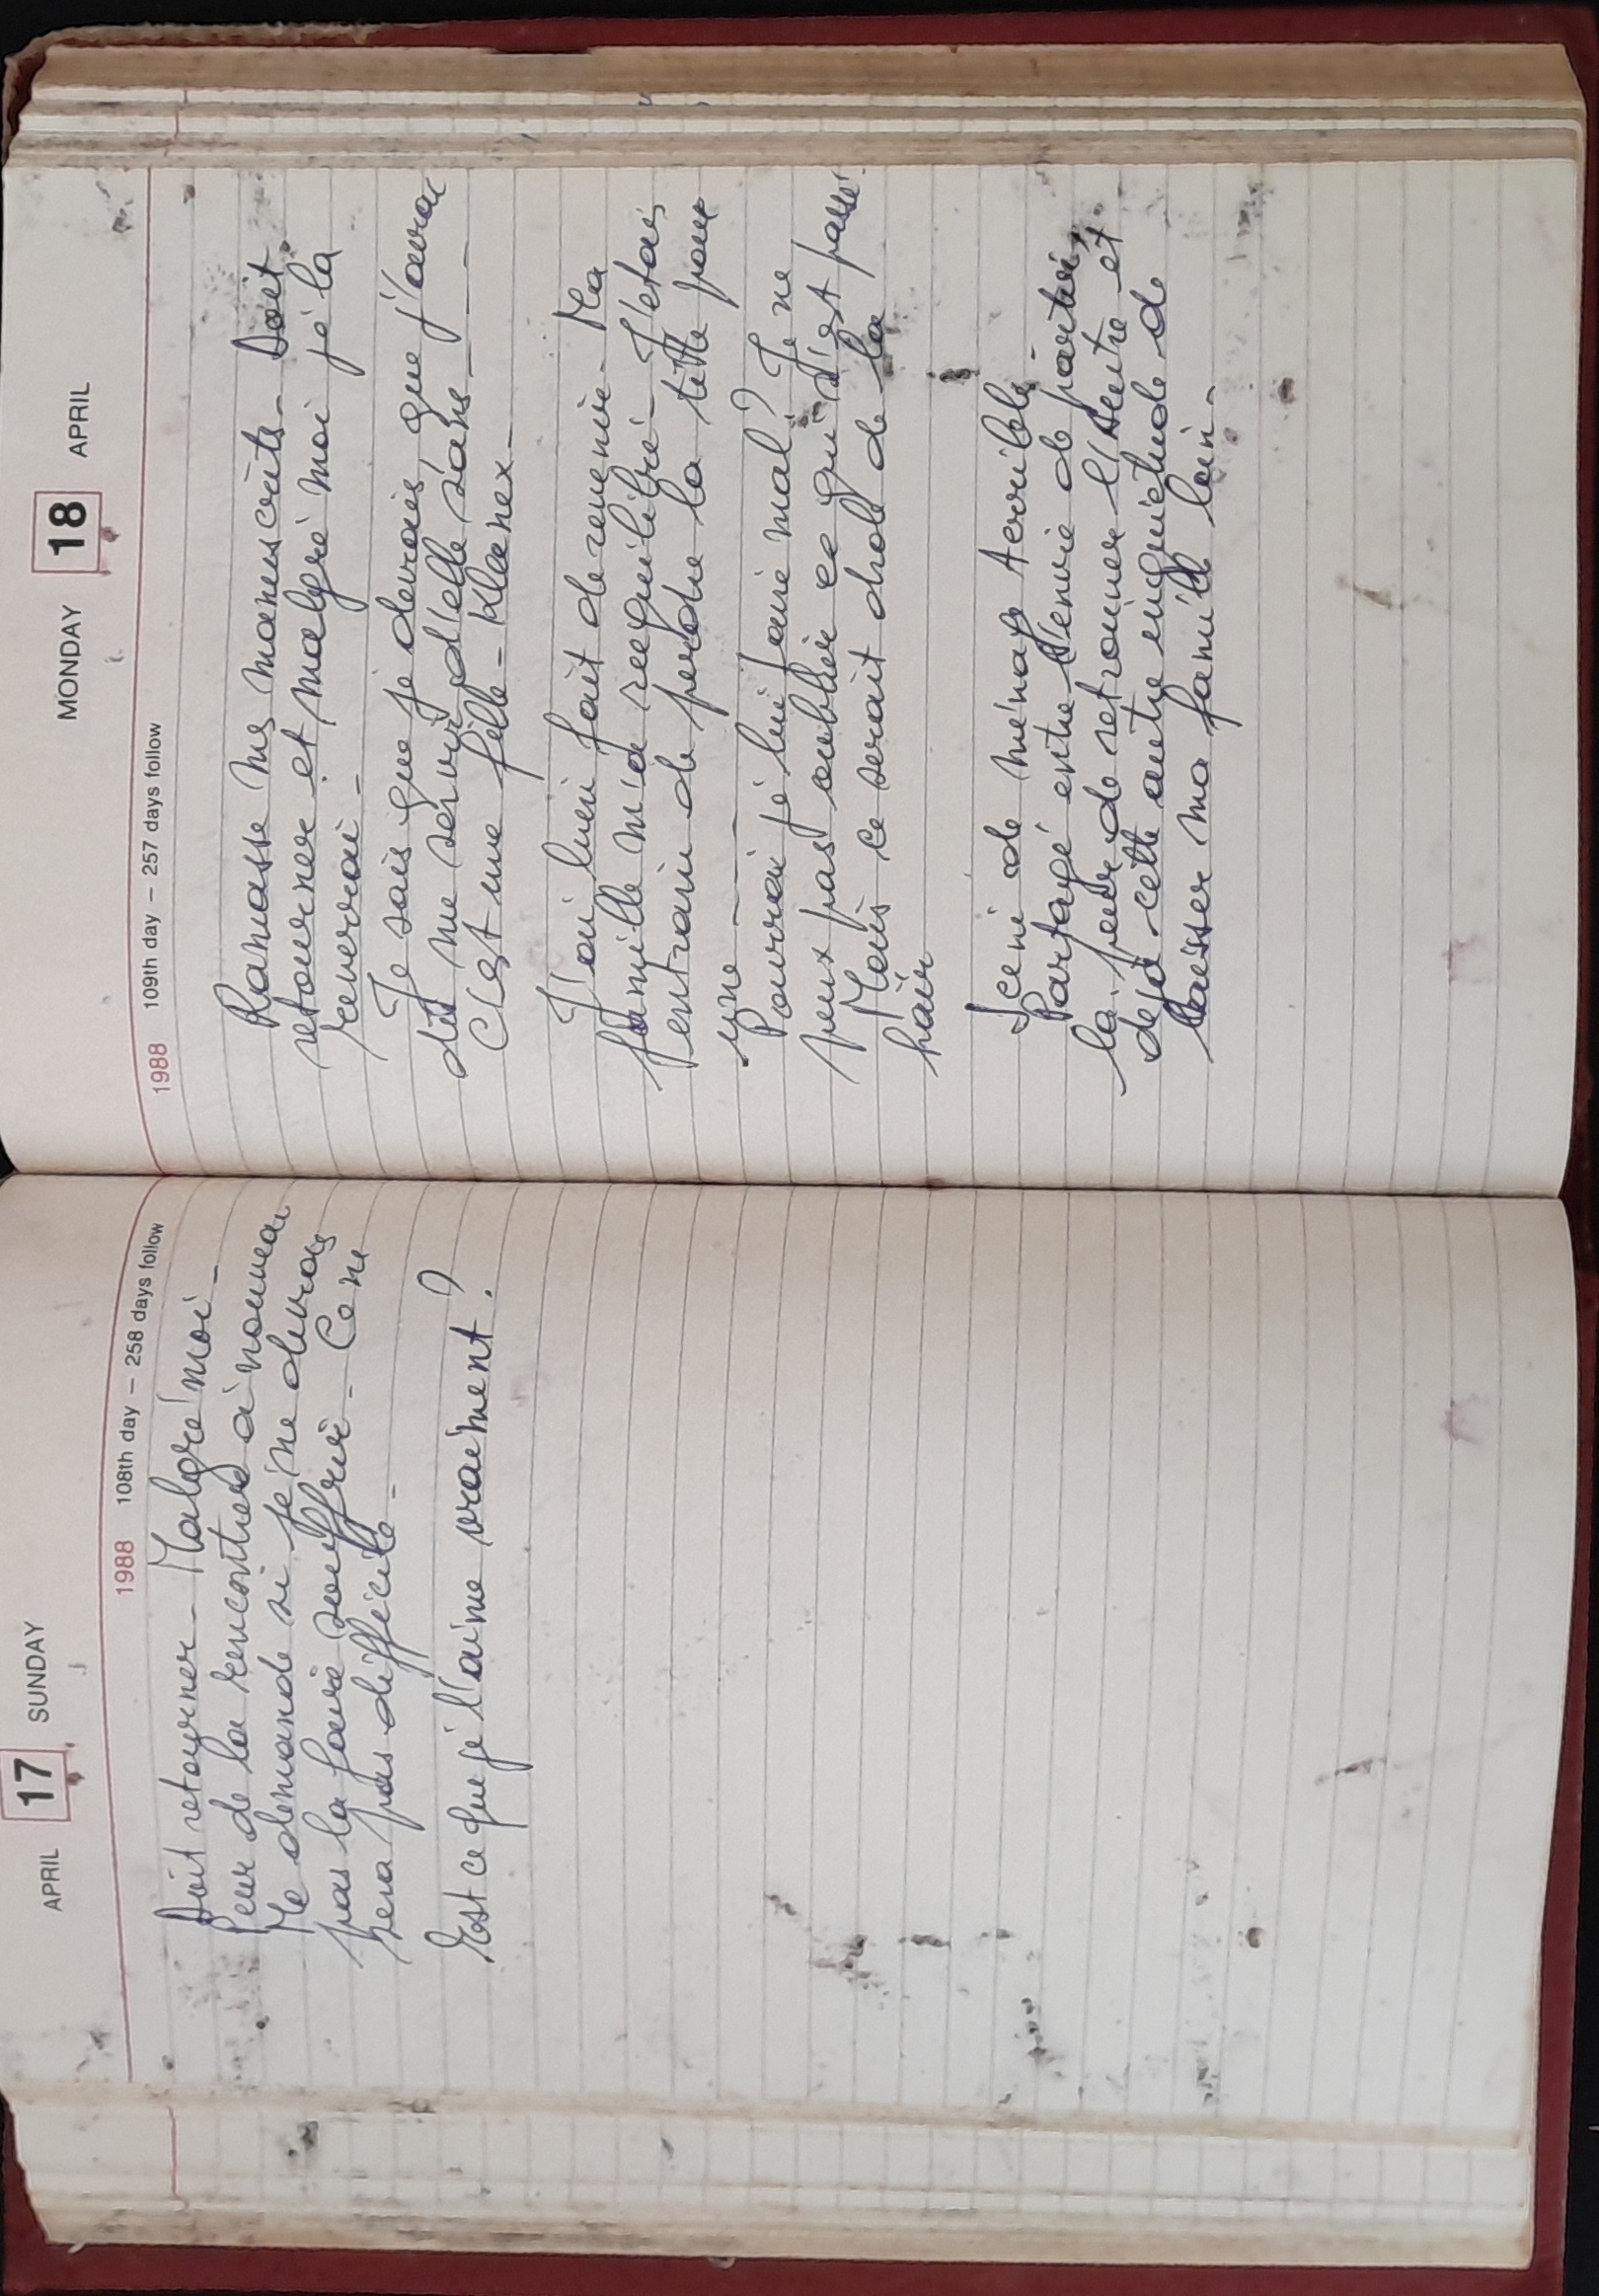 APRIL 17 SUNDAY
1988 108th day – 258 days follow
Doit retourner – Malgré moi –
Peur de la rencontrer à nouveau
Me demande si je ne devrais
pas la faire souffrir – Ce ne
sera pas difficile –
Est ce que je l'aime vraiment ?
MONDAY 18 APRIL
1988 109th day – 257 days follow
Ramasse mes manuscrits – Doit
retourner et malgré moi je la
reverrai –
Je sais que je devrais, que j'aurai
dû me servir d'elle sans – – – –
C'est une fille – Kleenex –
J'ai bien fait de revenir – Ma
famille m'a rééquilibré – J'étais
entrain de perdre la tête pour
une – – – –
Pourrai je lui faire mal ? Je ne
peux pas oublier ce qui s'est passé
Mais ce serait drole de la
haïr
Scène de ménage terrible –
Partagé entre l'envie de partir,
la peur de retrouver l'autre et
déjà cette autre inquiétude de
laisser ma famille loin –